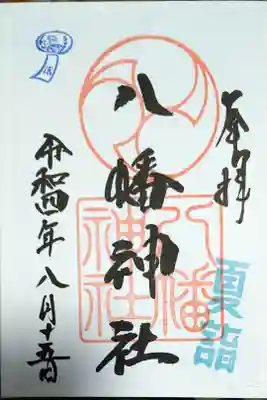 奉拝
夏詣
八幡神社
八幡
神社
令和四年八月十五日